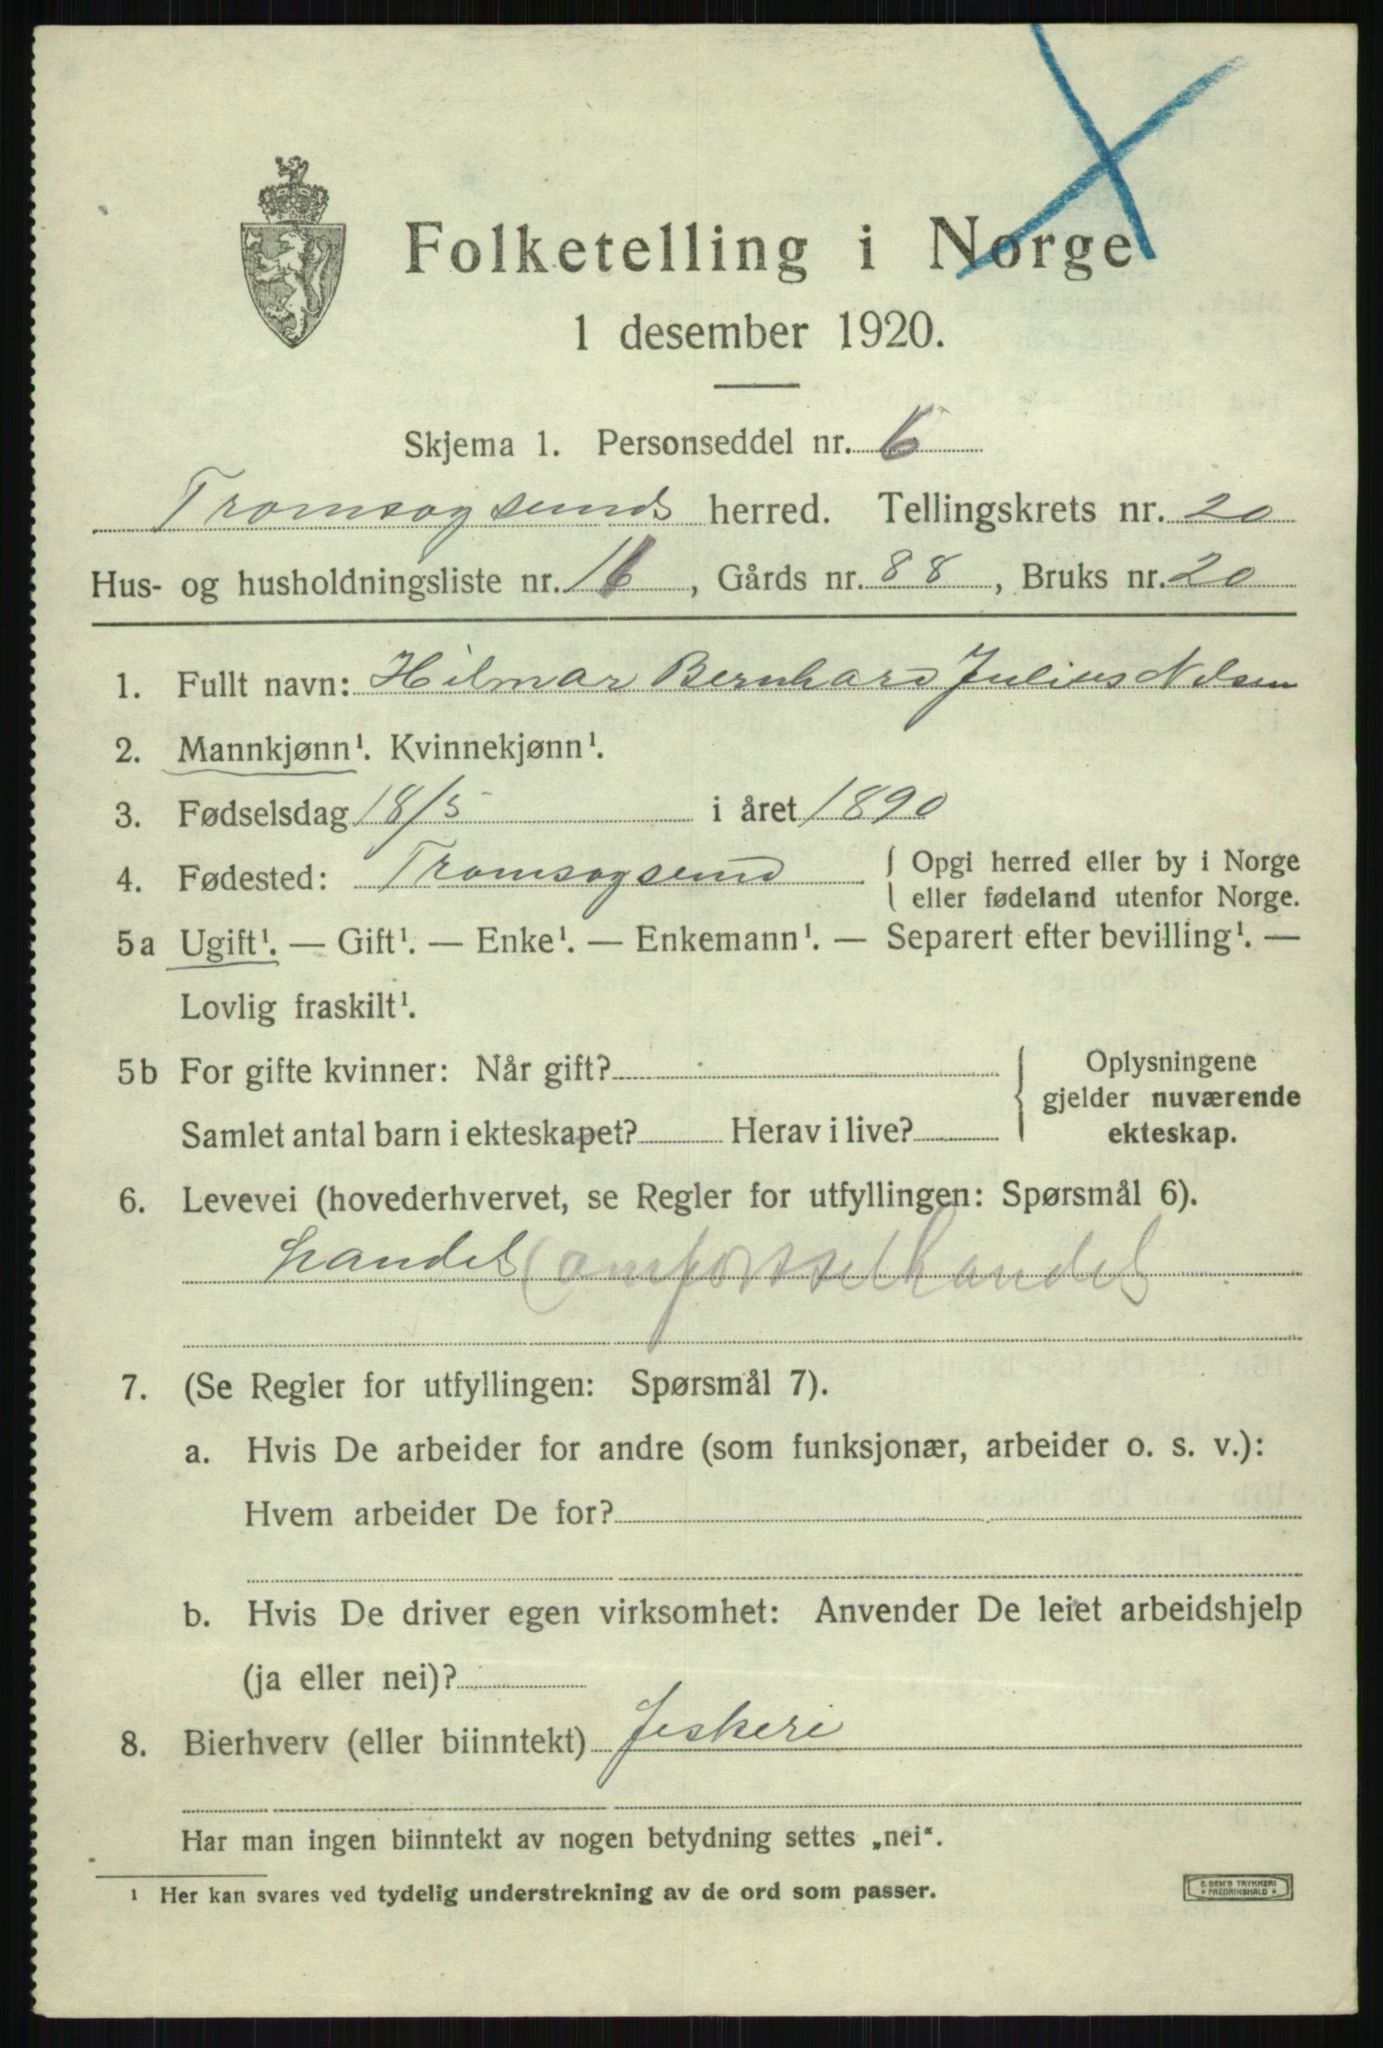 Folketelling i Norge
1 desember 1920.
Skjema 1. Personseddel nr. 6
Tromsøysund herred. Tellingskrets nr. 20
Hus- og husholdningsliste nr. 16, Gårds nr. 88, Bruks nr. 20
1. Fullt navn: Hilmar Bernhard Julius Nilsen
2. Mannkjønn¹. Kvinnekjønn¹.
3. Fødselsdag 18/5 i året 1890
4. Fødested: Tromsøysund { Opgi herred eller by i Norge
eller fødeland utenfor Norge.
5a Ugift¹. — Gift¹. — Enke¹. — Enkemann¹. — Separert efter bevilling¹. —
Lovlig fraskilt¹.
5b For gifte kvinner: Når gift? { Oplysningene
gjelder nuværende
Samlet antal barn i ekteskapet? Herav i live? ekteskap.
6. Levevei (hovederhvervet, se Regler for utfyllingen: Spørsmål 6).
handel
7. (Se Regler for utfyllingen: Spørsmål 7).
a. Hvis De arbeider for andre (som funksjonær, arbeider o. s. v.):
Hvem arbeider De for?
b. Hvis De driver egen virksomhet: Anvender De leiet arbeidshjelp
(ja eller nei)?
8. Bierhverv (eller biinntekt) fiskeri
Har man ingen biinntekt av nogen betydning settes „nei".
¹ Her kan svares ved tydelig understrekning av de ord som passer.